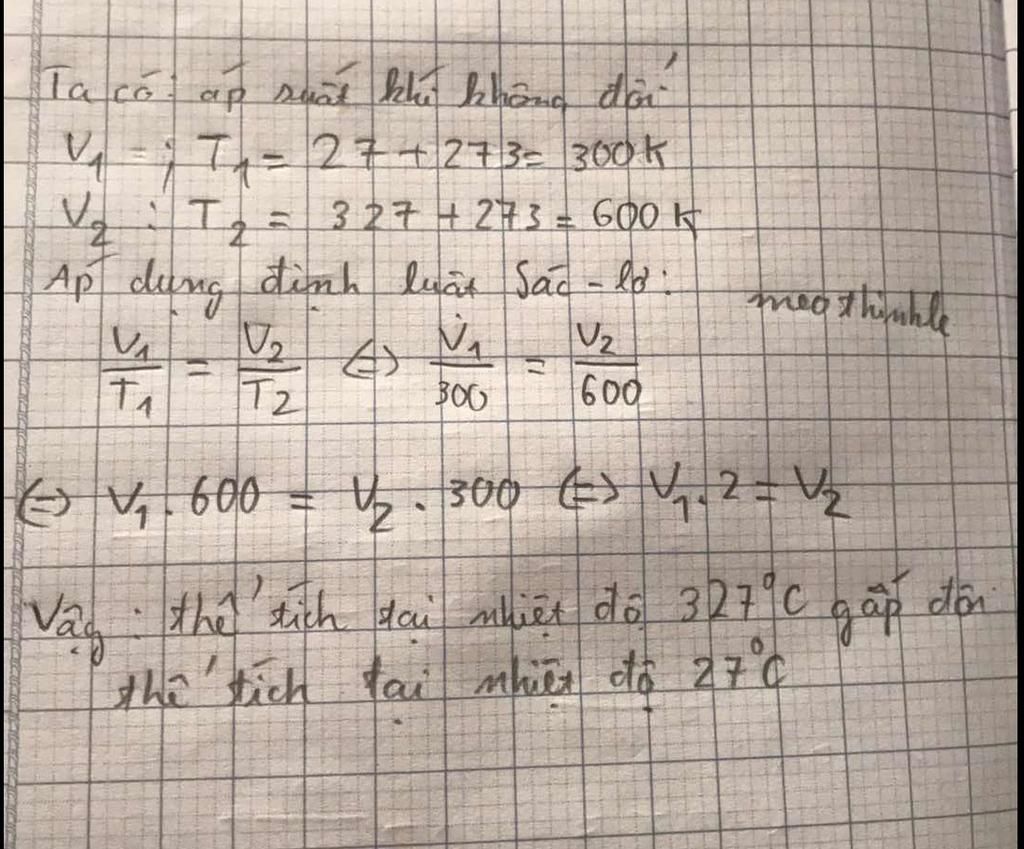 Ta có: áp suất khí không đổi
V₁ ; T₁ = 27 + 273 = 300K
V₂ : T₂ = 327 + 273 = 600K
Áp dụng định luật Sác - lơ:
meothinhle
V₁/T₁ = V₂/T₂ (=) V₁/300 = V₂/600
(=) V₁ . 600 = V₂ . 300 (=) V₁ . 2 = V₂
Vậy : thể tích tại nhiệt độ 327°C gấp đôi
thể tích tại nhiệt độ 27°C